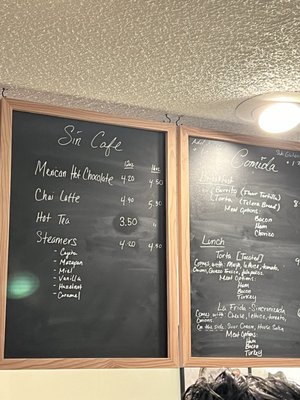 Sin Cafe
12oz 16oz
Mexican Hot Chocolate 4.20 4.50
Chai Latte 4.90 5.50
Hot Tea 3.50
Steamers 4.20 4.50
- Cajeta
- Mazapan
- Miel
- Vanilla
- Hazelnut
- Caramel
Comida
Breakfast
Burrito (Flour Tortilla)
Torta (Telera Bread)
Meat Options:
Bacon
Ham
Chorizo
Lunch
Torta [Toasted]
Comes with: Mayo, lettuce, tomato,
Onions, Queso Fresco, Jalapeños
Meat Options:
Ham
Bacon
Turkey
La Frida - Sincronizada
Comes with: Cheese, lettuce, tomato,
onions.
On the side: Sour Cream, House Salsa
Meat Options:
Ham
Bacon
Turkey